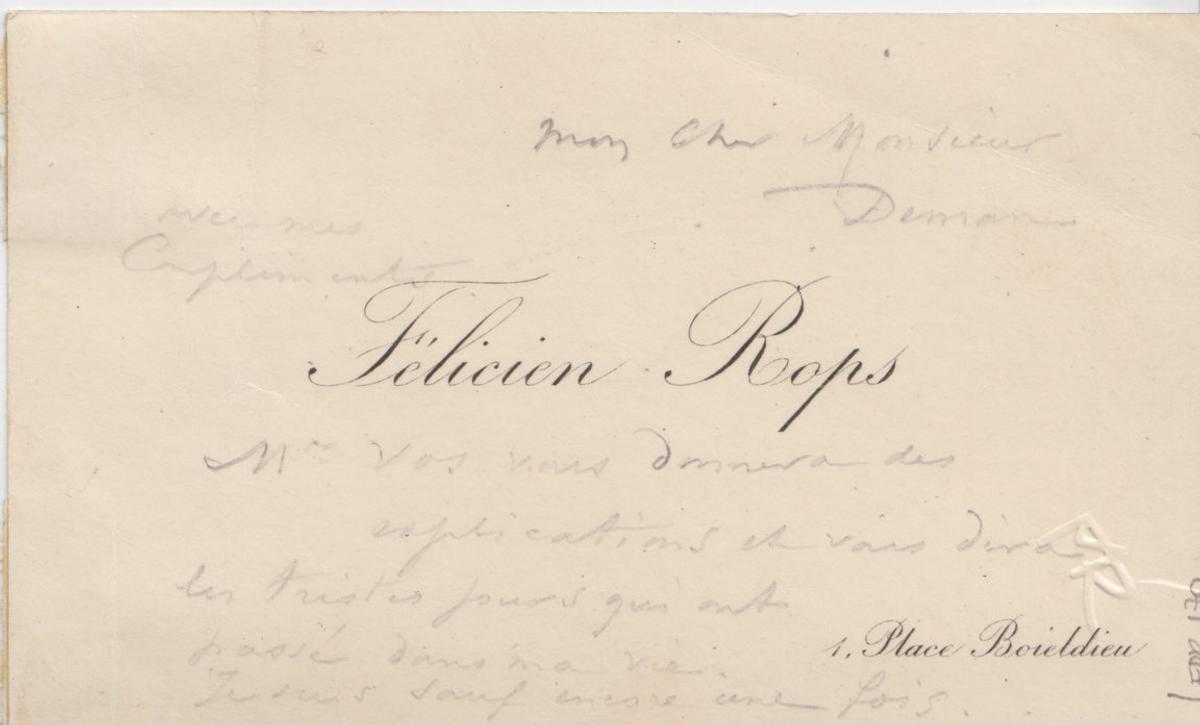 Mon Cher Monsieur
Deman
avec mes
Compliments
Félicien Rops
Mr Vos vous donnera des
explications et vous dira
les tristes jours qui ont
passé dans ma vie.
Je suis sauf encore une fois.
1, Place Boieldieu